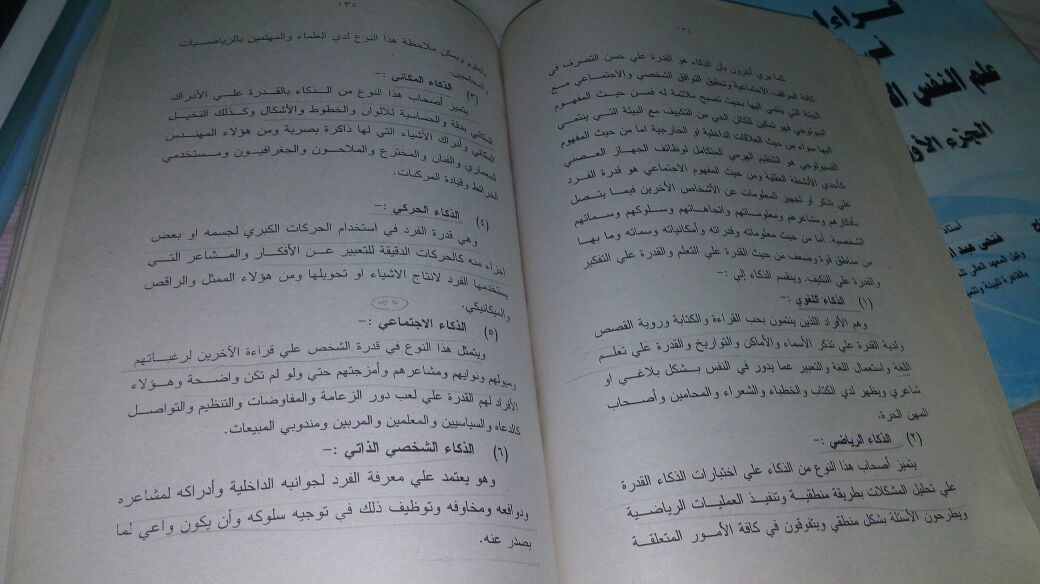 ١٣٤
كما يري آخرون بأن الذكاء هو القدرة علي حسن التصرف في
كافة المواقف الاجتماعية وتحقيق التوافق الشخصي والاجتماعي مع
البيئة التي ينتمي اليها بحيث تصبح ملائمة له فمن حيث المفهوم
البيولوجي فهو تمكين للكائن الحي من التكييف مع البيئة التي ينتمي
اليها سواء من حيث العلاقات الداخلية او الخارجية اما من حيث المفهوم
الفسيولوجي هو التنظيم الهرمي المتكامل لوظائف الجهاز العصبي
كأحدي الأنشطة العقلية ومن حيث المفهوم الاجتماعي هو قدرة الفرد
علي تذكر او تجهيز المعلومات عن الأشخاص الأخرين فيما يتصل
بأفكارهم ومشاعرهم ومعلوماتهم واتجاهاتهم وسلوكهم وسماتهم
الشخصية. أما من حيث معلوماته وقدراته وأمكانياته وسماته وما بها
من مناطق قوة وضعف من حيث القدرة علي التعلم والقدرة علي التفكير
والقدرة علي التكيف. وينقسم الذكاء إلي :-
(١) الذكاء اللغوي :-
وهم الأفراد الذين يتمتعون بحب القراءة والكتابة وروية القصص
ولدية القدرة علي تذكر الأسماء والأماكن والتواريخ والقدرة علي تعلم
اللغة واستعمال اللغة والتعبير عما يدور في النفس بشكل بلاغي او
شاعري ويظهر لدي الكتاب والخطباء والشعراء والمحامين وأصحاب
المهن الحرة.
(٢) الذكاء الرياضي :-
يتميز أصحاب هذا النوع من الذكاء علي اختبارات الذكاء القدرة
علي تحليل المشكلات بطريقة منطقية وتنفيذ العمليات الرياضية
ويطرحون الأسئلة بشكل منطقي ويتفوقون في كافة الأمور المتعلقة
١٣٥
بالعلوم ويمكن ملاحظة هذا النوع لدي العلماء والمهتمين بالرياضيات
والمحاسبين.
(٣) الذكاء المكاني :-
يتميز أصحاب هذا النوع من الذكاء بالقدرة علي الأدراك
المكاني بدقة والحساسية للألوان والخطوط والأشكال وكذلك التخيل
المكاني وأدراك الأشياء التي لها ذاكرة بصرية ومن هؤلاء المهندس
المعماري والفنان والمخترع والملاحون والجغرافيون ومستخدمي
الخرائط وقيادة المركبات.
(٤) الذكاء الحركي :-
وهي قدرة الفرد في استخدام الحركات الكبري لجسمه او بعض
اجزاء منه كالحركات الدقيقة للتعبير عن الأفكار والمشاعر التي
يستخدمها الفرد لانتاج الاشياء او تحويلها ومن هؤلاء الممثل والراقص
والميكانيكي.
(٥) الذكاء الاجتماعي :-
ويتمثل هذا النوع في قدرة الشخص علي قراءة الآخرين لرغباتهم
وميولهم ونوايهم ومشاعرهم وأمزجتهم حتي ولو لم تكن واضحة وهؤلاء
الأفراد لهم القدرة علي لعب دور الزعامة والمفاوضات والتنظيم والتواصل
كالدعاه والسياسيين والمعلمين والمربين ومندوبي المبيعات.
(٦) الذكاء الشخصي الذاتي :-
وهو يعتمد علي معرفة الفرد لجوانبه الداخلية وأدراكه لمشاعره
ودوافعه ومخاوفه وتوظيف ذلك في توجيه سلوكه وأن يكون واعي لما
يصدر عنه.
علم النفس
الجزء الأول